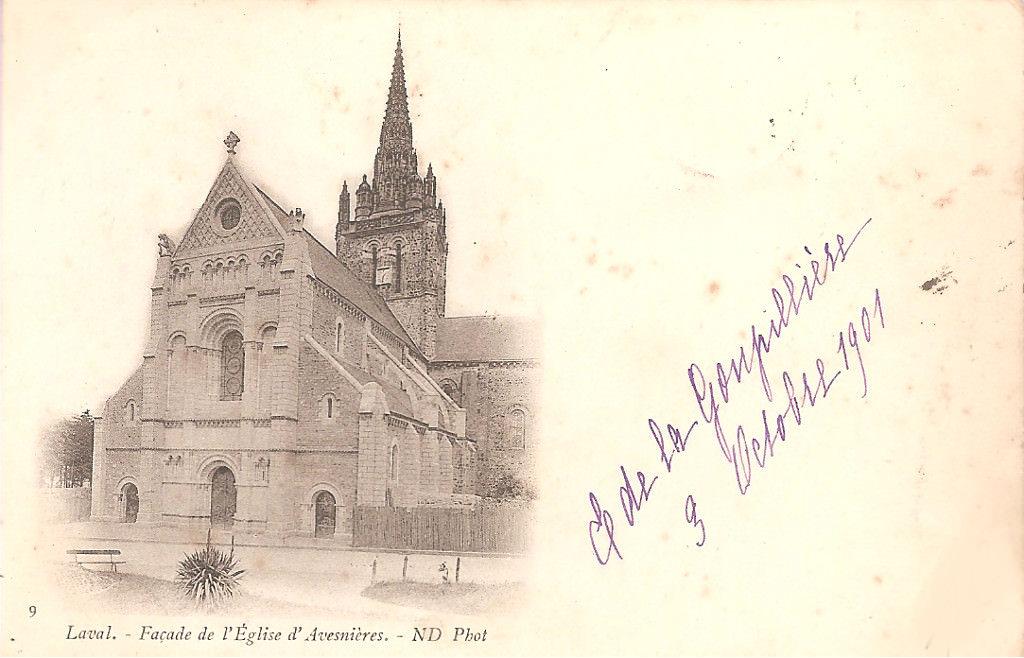 9
Laval. - Façade de l'Église d'Avesnières. - ND Phot
de la Goupillière
9 Octobre 1901